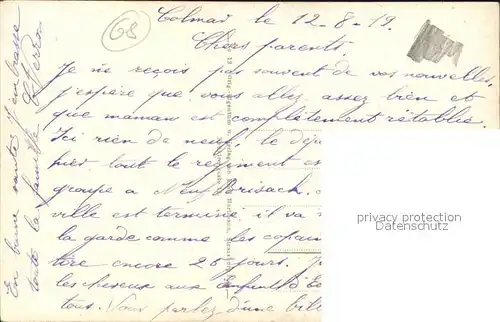 68
Colmar le 12-8-19.
Chers parents.
Je ne reçois pas souvent de vos nouvelles,
j'espère que vous allez assez bien et
que maman est complètement rétablie.
Ici rien de neuf, le dé
hier tout le régiment es
groupe a Neuf Brisach.
ville est terminé il va
la garde comme les copai
tire encore 26 jours. J
les cheveux aux Enfants d'E
tous. Vous parlez d'une bil
En bonne santé j'embrasse
toute la famille
privacy protection
Datenschutz